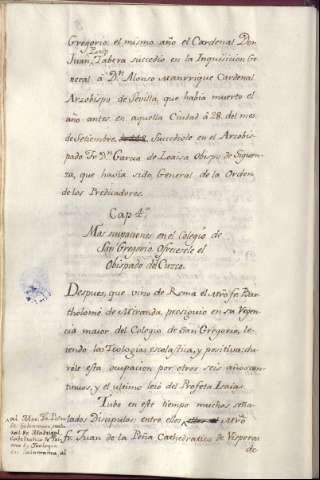 Gregorio: el mismo año el Cardenal Don
Juan Tabera succedio en la Inquisicion Ge
neral à Dn. Alonso Manrrique Cardenal
Arzobispo de Sevilla, que havia muerto el
año antes en aquella Ciudad à 28. del mes
de Setiembre. Succediole en el Arzobis-
pado Fr. Dn. Garcia de Loaisa Obispo de Siguen-
za, que havia sido General de la Orden
de los Predicadores.
Cap. 4º
Mas ocupaciones en el Colegio de
San Gregorio. Ofrecesele el
Obispado del Cuzco.
Despues, que vino de Roma el Mro. fr. Bar-
tholomé de Miranda, prosiguio en su Regen-
cia maior del Colegio de San Gregorio, le-
iendo las Theologias escolastica, y positiva; du-
role esta ocupacion por otros seis años con-
tinuos, y el ultimo leió del Profeta Isaias.
Tubo en este tiempo muchos seña-
lados Discipulos: entre ellos al Mro.
fr. Juan de la Peña Cathedratico de Visperas
de
al Mro. Fr.
de Salamanca,
Cathedratico de
Theologia
en Salamanca, al